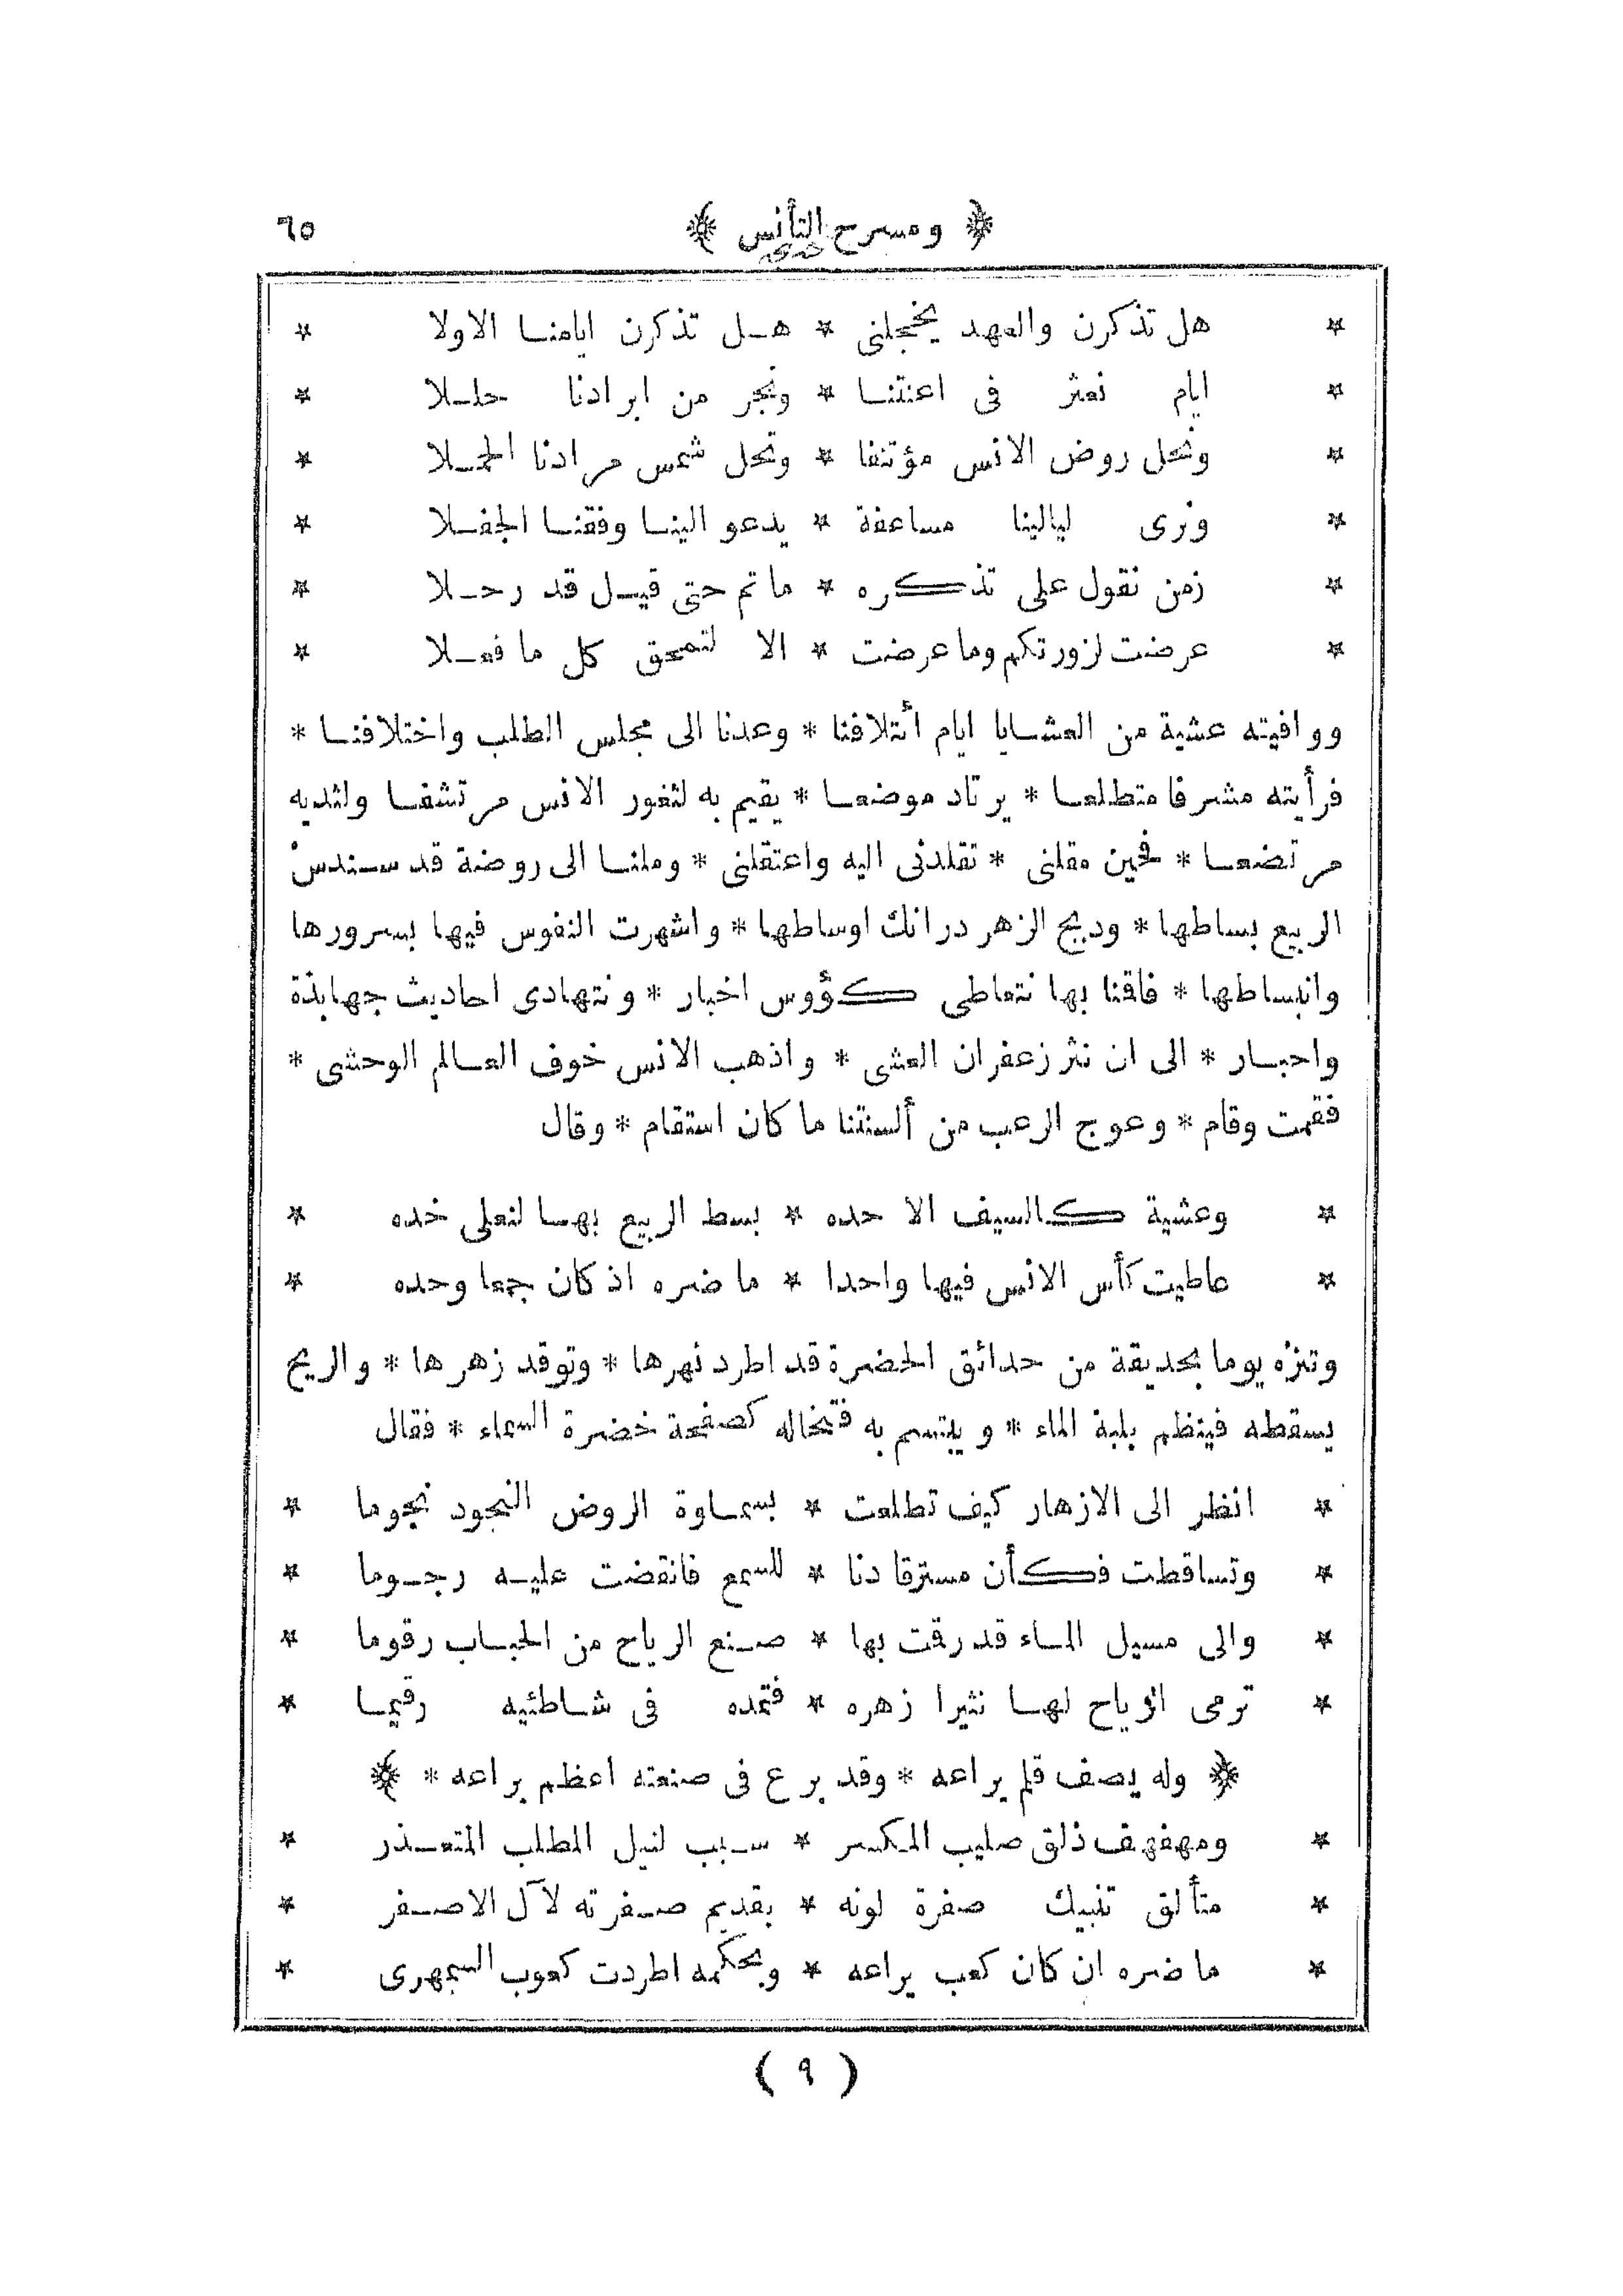 ﴿ ومسرح التأنس ﴾ ٦٥
* هل تذكرن والعهد يخجلنى * هل تذكرن ايامنا الاولا *
* ايام نعثر فى اعنتنا * ونجر من ابرادنا حللا *
* ونحل روض الانس مؤتنفا * وتحل شمس مرادنا الحملا *
* ونرى ليالينا مساعفة * يدعو الينا وفقنا الجفلا *
* زمن نقول على تذكره * ما تم حتى قيل قد رحلا *
* عرضت لزورتكم وما عرضت * الا لتمحق كل ما فعلا *
ووافيته عشية من العشايا ايام أئتلافنا * وعدنا الى مجلس الطلب واختلافنا *
فرأيته مشرفا متطلعا * يرتاد موضعا * يقيم به لثغور الانس مرتشفا ولثديه
مرتضعا * فحين مقلنى * تقلدنى اليه واعتقلنى * وملنا الى روضة قد سندس
الربيع بساطها * ودبج الزهر درانك اوساطها * واشهرت النفوس فيها بسرورها
وانبساطها * فاقنا بها نتعاطى كؤوس اخبار * ونتهادى احاديث جهابذة
واحبار * الى ان نثر زعفران العشى * واذهب الانس خوف العالم الوحشى *
فقمت وقام * وعوج الرعب من ألسنتنا ما كان استقام * وقال
* وعشية كالسيف الا حده * بسط الربيع بها لنعلى خده *
* عاطيت كأس الانس فيها واحدا * ما ضره اذ كان جمعا وحده *
وتنزه يوما بحديقة من حدائق الحضرة قد اطرد نهرها * وتوقد زهرها * والريح
يسقطه فينظم بلبة الماء * ويبتسم به فتخاله كصفحة خضرة السماء * فقال
* انظر الى الازهار كيف تطلعت * بسماوة الروض النجود نجوما *
* وتساقطت فكأن مسترقا دنا * للسمع فانقضت عليه رجوما *
* والى مسيل الماء قد رقت بها * صنع الرياح من الحباب رقوما *
* ترمى الرياح لها نثيرا زهره * فتمده فى شاطئيه رقيما *
﴿ وله يصف قلم يراعه * وقد برع فى صنعته اعظم براعه * ﴾
* ومهفهف ذلق صليب المكسر * سبب لنيل المطلب المتعذر *
* متألق تنبيك صفرة لونه * بقديم صفرته لآل الاصفر *
* ما ضره ان كان كعب يراعه * وبحكمه اطردت كعوب السمهرى *
( ٩ )